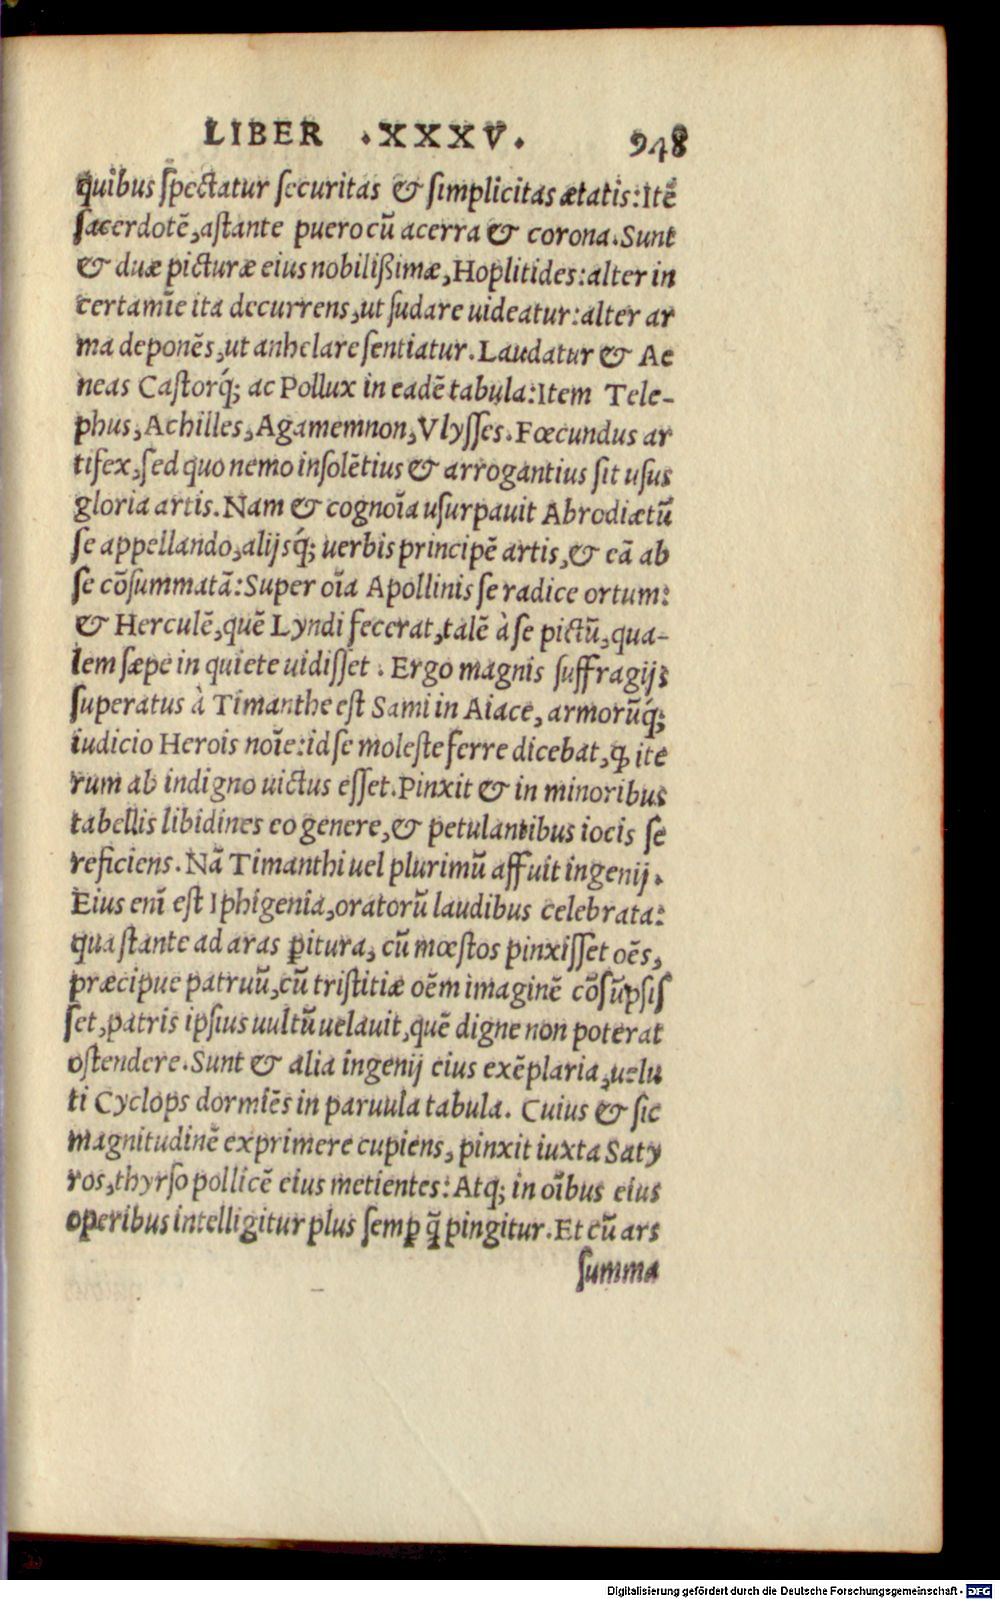 LIBER .XXXV. 948
quibus spectatur securitas & simplicitas ætatis: Itē
sacerdotē, astante puero cū acerra & corona. Sunt
& duæ picturæ eius nobilißimæ, Hoplitides: alter in
certamīe ita decurrens, ut sudare uideatur: alter ar
ma deponēs, ut anhelare sentiatur. Laudatur & Ae
neas Castorq́; ac Pollux in eadē tabula: Item Tele-
phus, Achilles, Agamemnon, Vlysses. Fœcundus ar
tifex, sed quo nemo insolētius & arrogantius sit usus
gloria artis. Nam & cognoīa usurpauit Abrodiætū
se appellando, alijsq́; uerbis principē artis, & eā ab
se cōsummatā: Super oīa Apollinis se radice ortum:
& Herculē, quē Lyndi fecerat, talē à se pictū, qua-
lem sæpe in quiete uidisset. Ergo magnis suffragijs
superatus à Timanthe est Sami in Aiace, armorūq́;
iudicio Herois noīe: id se moleste ferre dicebat, ꝙ ite
rum ab indigno uictus esset. Pinxit & in minoribus
tabellis libidines eo genere, & petulantibus iocis se
reficiens. Nā Timanthi uel plurimū affuit ingenij.
Eius enī est Iphigenia, oratorū laudibus celebrata:
qua stante ad aras ꝑitura, cū mœstos pinxisset oēs,
præcipue patruū, cū tristitiæ oēm imaginē cōsūpsis
set, patris ipsius uultū uelauit, quē digne non poterat
ostendere. Sunt & alia ingenij eius exēplaria, uelu
ti Cyclops dormiēs in paruula tabula. Cuius & sic
magnitudinē exprimere cupiens, pinxit iuxta Saty
ros, thyrso pollicē eius metientes: Atq; in oībus eius
operibus intelligitur plus semꝑ q̄ pingitur. Et cū ars
summa
Digitalisierung gefördert durch die Deutsche Forschungsgemeinschaft - DFG